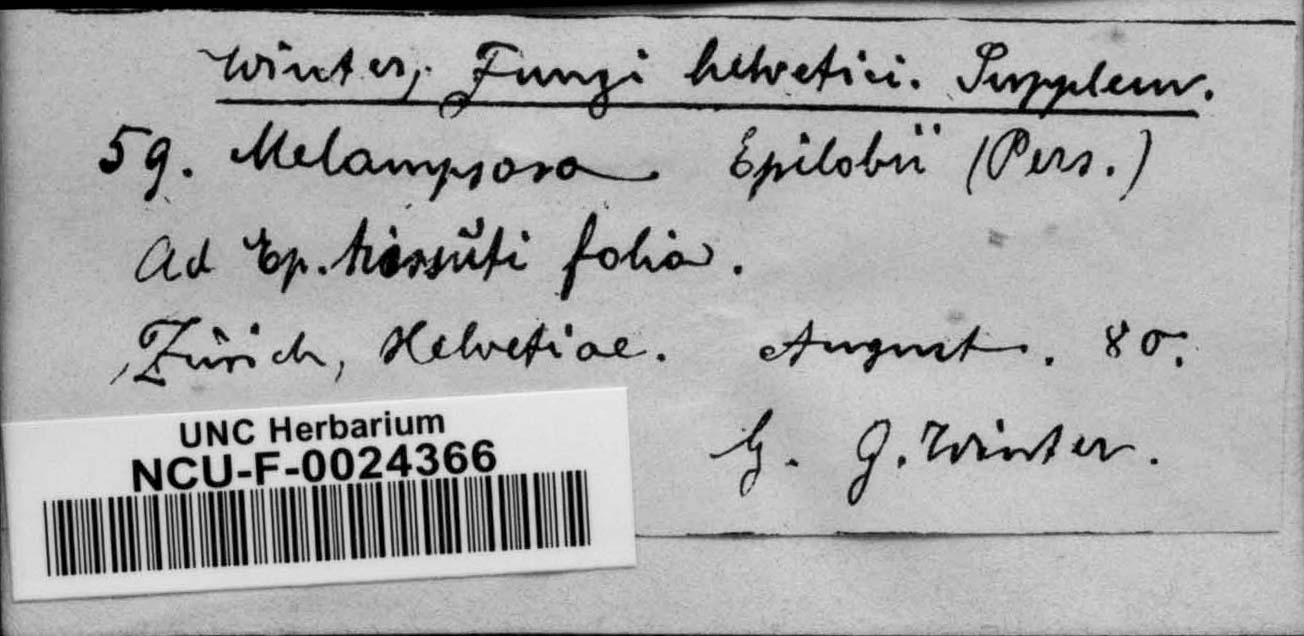 Winter, Fungi helvetici. Supplem.
59. Melampsora. Epilobii (Pers.)
Ad Ep. hirsuti folia.
Zürich, Helvetiae. August. 80.
G. G. Winter.
UNC Herbarium
NCU-F-0024366